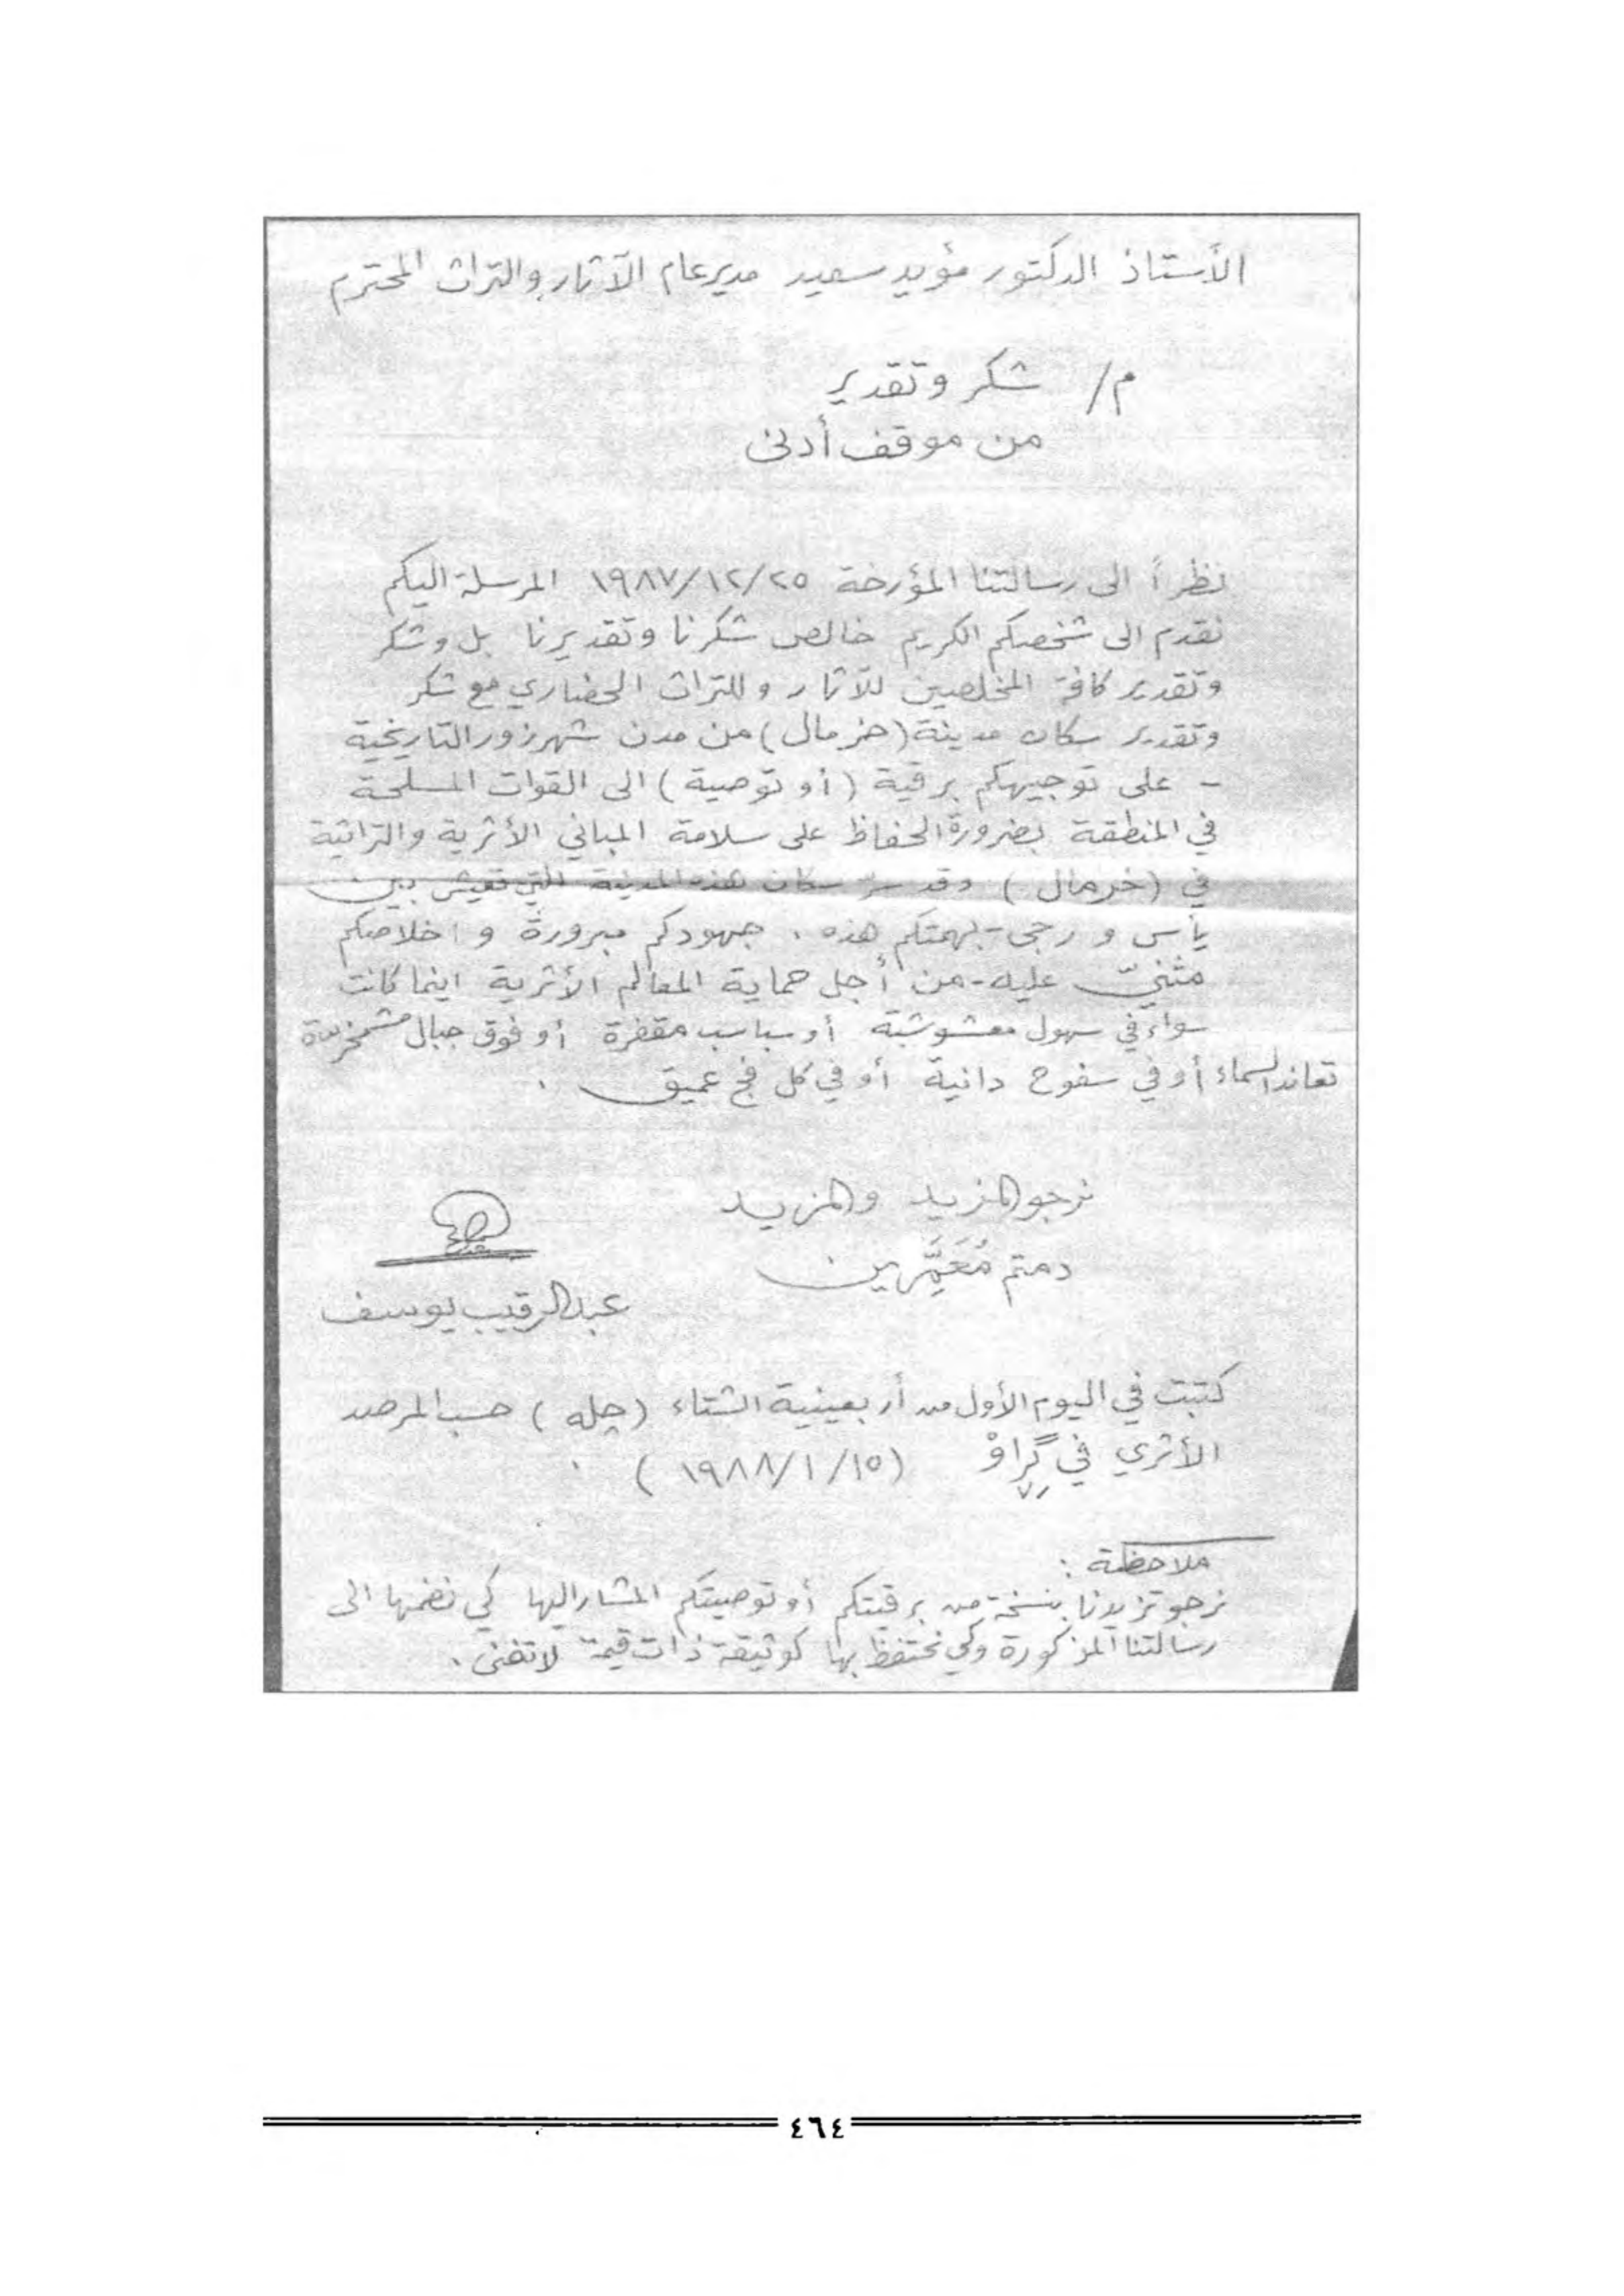 الأستاذ الدكتور مؤيد سعيد مدير عام الآثار والتراث المحترم
م/ شكر وتقدير
من موقف أدنى
نظراً الى رسالتنا المؤرخة ١٩٨٧/١٢/٢٥ المرسلة اليكم
نقدم الى شخصكم الكريم خالص شكرنا وتقديرنا بل وشكر
وتقدير كافة المخلصين للآثار وللتراث الحضاري مع شكر
وتقدير سكان مدينة (خرمال) من مدن شهرزور التاريخية
- على توجيهكم برقية (أو توصية) الى القوات المسلحة
في المنطقة بضرورة الحفاظ على سلامة المباني الأثرية والتراثية
في (خرمال) وقد سرّ سكان هذه المدينة التي تعيش بين
يأس و رجى - بهمتكم هذه . جهودكم مبرورة و اخلاصكم
مثنيّ عليه - من أجل حماية المعالم الأثرية اينما كانت
سواء في سهول معشوشبة أو سباسب مقفرة أو فوق جبال مشمخرة
تعاند السماء أو في سفوح دانية أو في كل فج عميق .
نرجو المزيد والمزيد
دمتم مُعَمَّرين
عبدالرقيب يوسف
كتبت في اليوم الأول من أربعينية الشتاء (چله) حسب المرصد
الأثري في گراوْ (١٩٨٨/١/١٥) .
ملاحظة :
نرجو تزويدنا بنسخة من برقيتكم أو توصيتكم المشار اليها كي نضمها الى
رسالتنا المذكورة وكي نحتفظ بها كوثيقة ذات قيمة لا تفنى .
٤٦٤